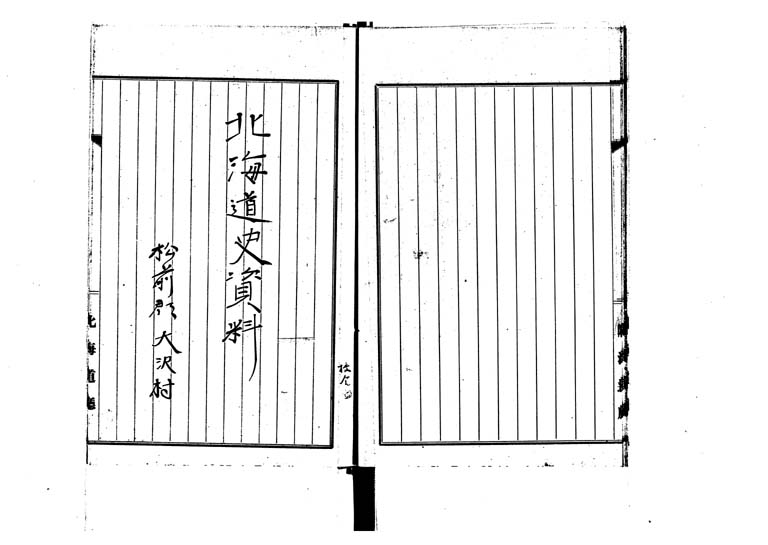 北海道史資料
松前郡大沢村
北海道廳